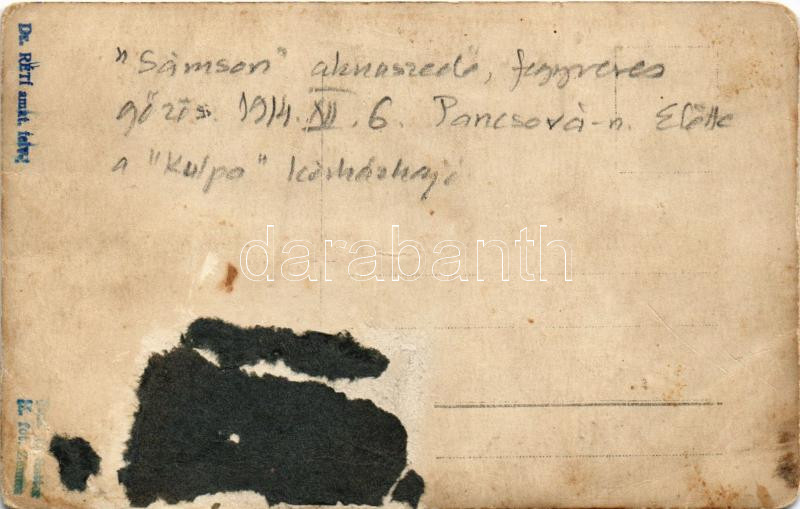 "Sámson" aknaszedő, fegyveres
gőzös. 1914. XII. 6. Pancsová-n. Előtte
a "Kulpa" kórházhajó
Dr. RÉTI amat. felv.
darabanth